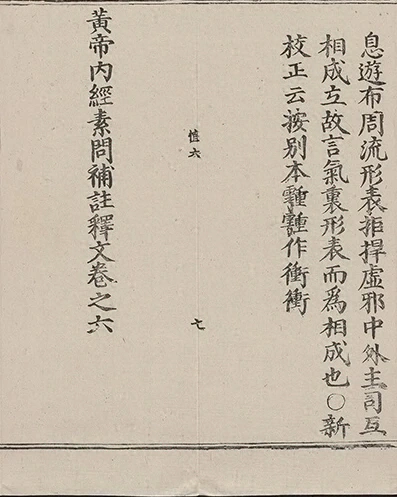 息遊布周流形表拒捍虛邪中外主司互
相成立故言氣裏形表而為相成也○新
校正云按別本𩅞𩅞作衝衝
慎六
七
黃帝內經素問補註釋文卷之六